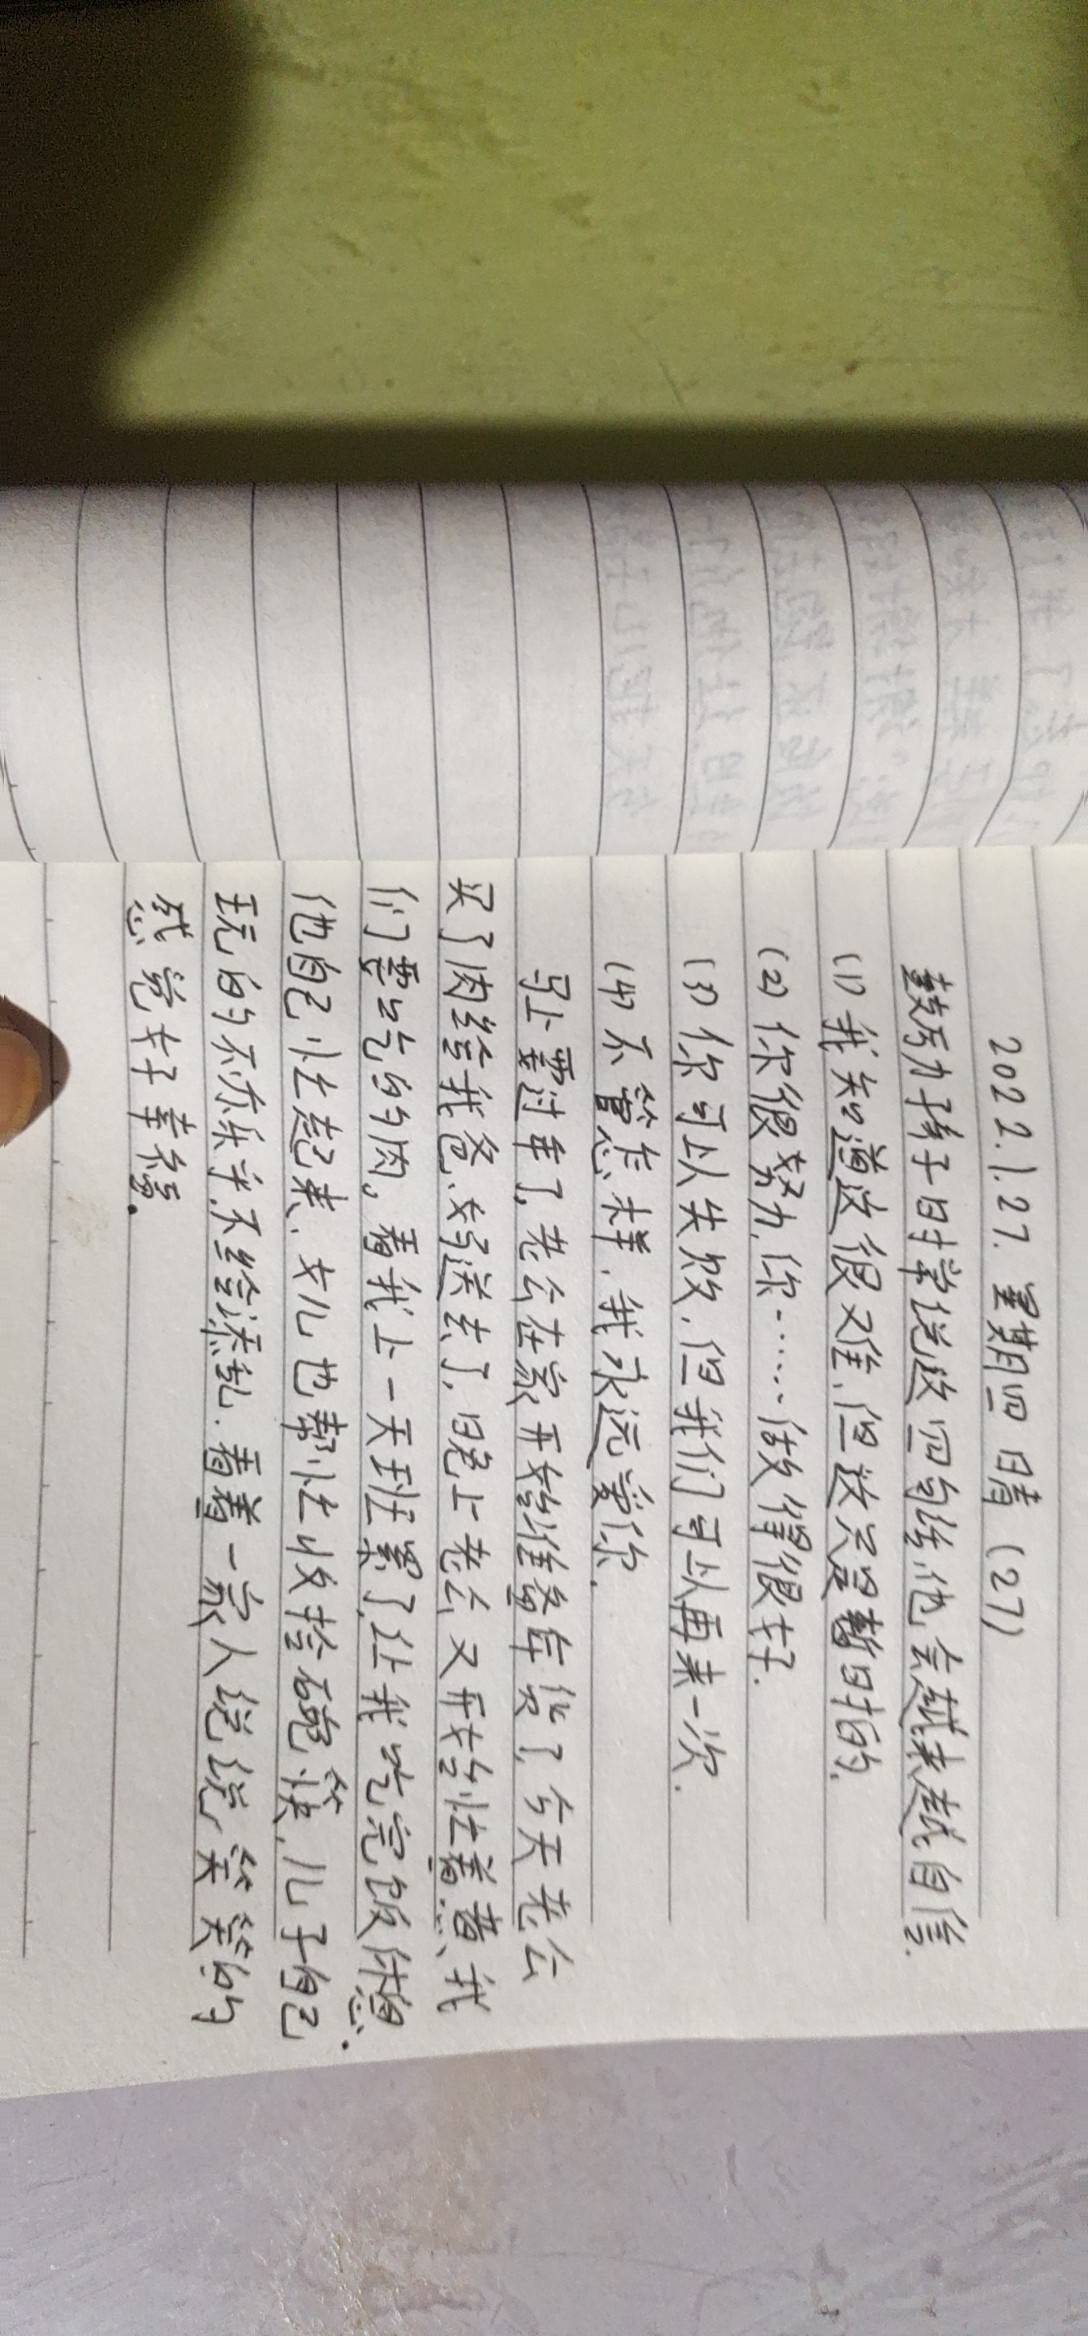 2022.1.27. 星期四 晴 (27)
鼓励孩子时常说这四句话,他会越来越自信.
(1) 我知道这很难,但这只是暂时的.
(2) 你很努力,你……做得很好.
(3) 你可以失败,但我们可以再来一次.
(4) 不管怎样,我永远爱你.
马上要过年了,老公在家开始准备年货了,今天老公
买了肉给我爸、妈送去了,晚上老公又开始忙着煮、我
们要吃的肉。看我上一天班累了,让我吃完饭休息.
他自己忙起来,女儿也帮忙收拾碗筷,儿子自己
玩的不亦乐乎,不给添乱.看着一家人说说笑笑的
感觉好幸福.